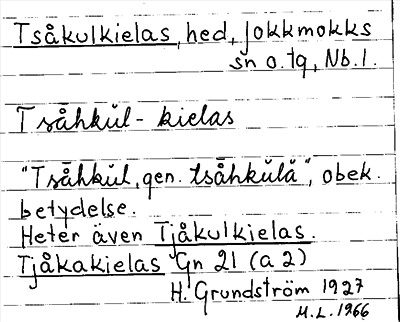 Tsåkulkielas, hed, Jokkmokks
sn o. tg, Nb. l.
Tsā̊hkŭl - kielas
"Tsā̊hkŭl, gen. tsā̊hkŭlă", obek.
betydelse.
Heter även Tjåkulkielas.
Tjåkakielas Gn 21 (a 2)
H. Grundström 1927
M.L. 1966